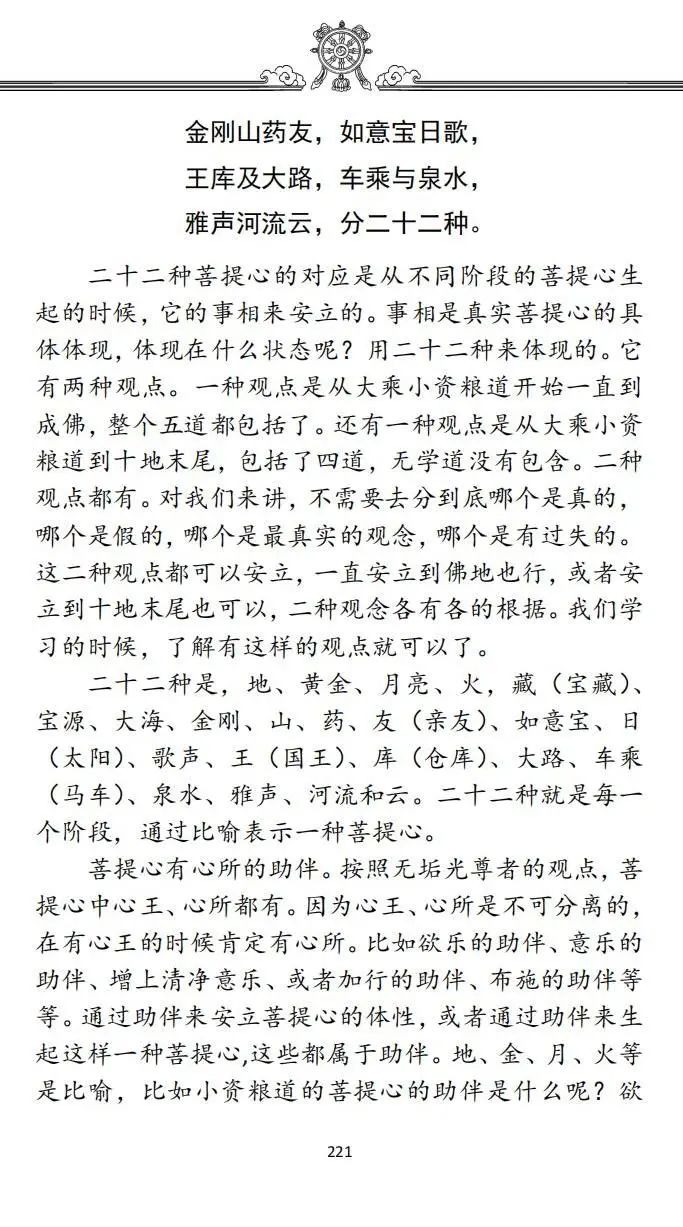 金刚山药友，如意宝日歌，
王库及大路，车乘与泉水，
雅声河流云，分二十二种。
二十二种菩提心的对应是从不同阶段的菩提心生
起的时候，它的事相来安立的。事相是真实菩提心的具
体体现，体现在什么状态呢？用二十二种来体现的。它
有两种观点。一种观点是从大乘小资粮道开始一直到
成佛，整个五道都包括了。还有一种观点是从大乘小资
粮道到十地末尾，包括了四道，无学道没有包含。二种
观点都有。对我们来讲，不需要去分到底哪个是真的，
哪个是假的，哪个是最真实的观念，哪个是有过失的。
这二种观点都可以安立，一直安立到佛地也行，或者安
立到十地末尾也可以，二种观念各有各的根据。我们学
习的时候，了解有这样的观点就可以了。
二十二种是，地、黄金、月亮、火，藏（宝藏）、
宝源、大海、金刚、山、药、友（亲友）、如意宝、日
（太阳）、歌声、王（国王）、库（仓库）、大路、车乘
（马车）、泉水、雅声、河流和云。二十二种就是每一
个阶段，通过比喻表示一种菩提心。
菩提心有心所的助伴。按照无垢光尊者的观点，菩
提心中心王、心所都有。因为心王、心所是不可分离的，
在有心王的时候肯定有心所。比如欲乐的助伴、意乐的
助伴、增上清净意乐、或者加行的助伴、布施的助伴等
等。通过助伴来安立菩提心的体性，或者通过助伴来生
起这样一种菩提心,这些都属于助伴。地、金、月、火等
是比喻，比如小资粮道的菩提心的助伴是什么呢？欲
221